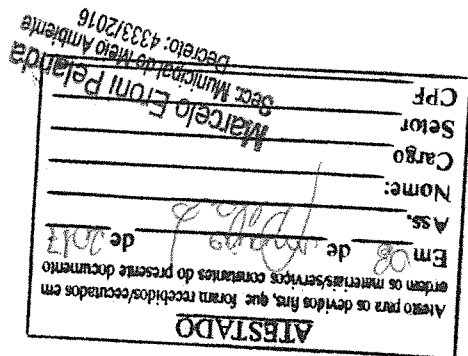 ATESTADO
Atesto para os devidos fins, que foram recebidos/executados em
ordem os materiais/serviços constantes do presente documento
Em 08 de março de 2017
Ass.
Nome:
Cargo
Setor
CPF
Marcelo Eroni Pelanda
Secr. Municipal do Meio Ambiente
Decreto: 4333/2016